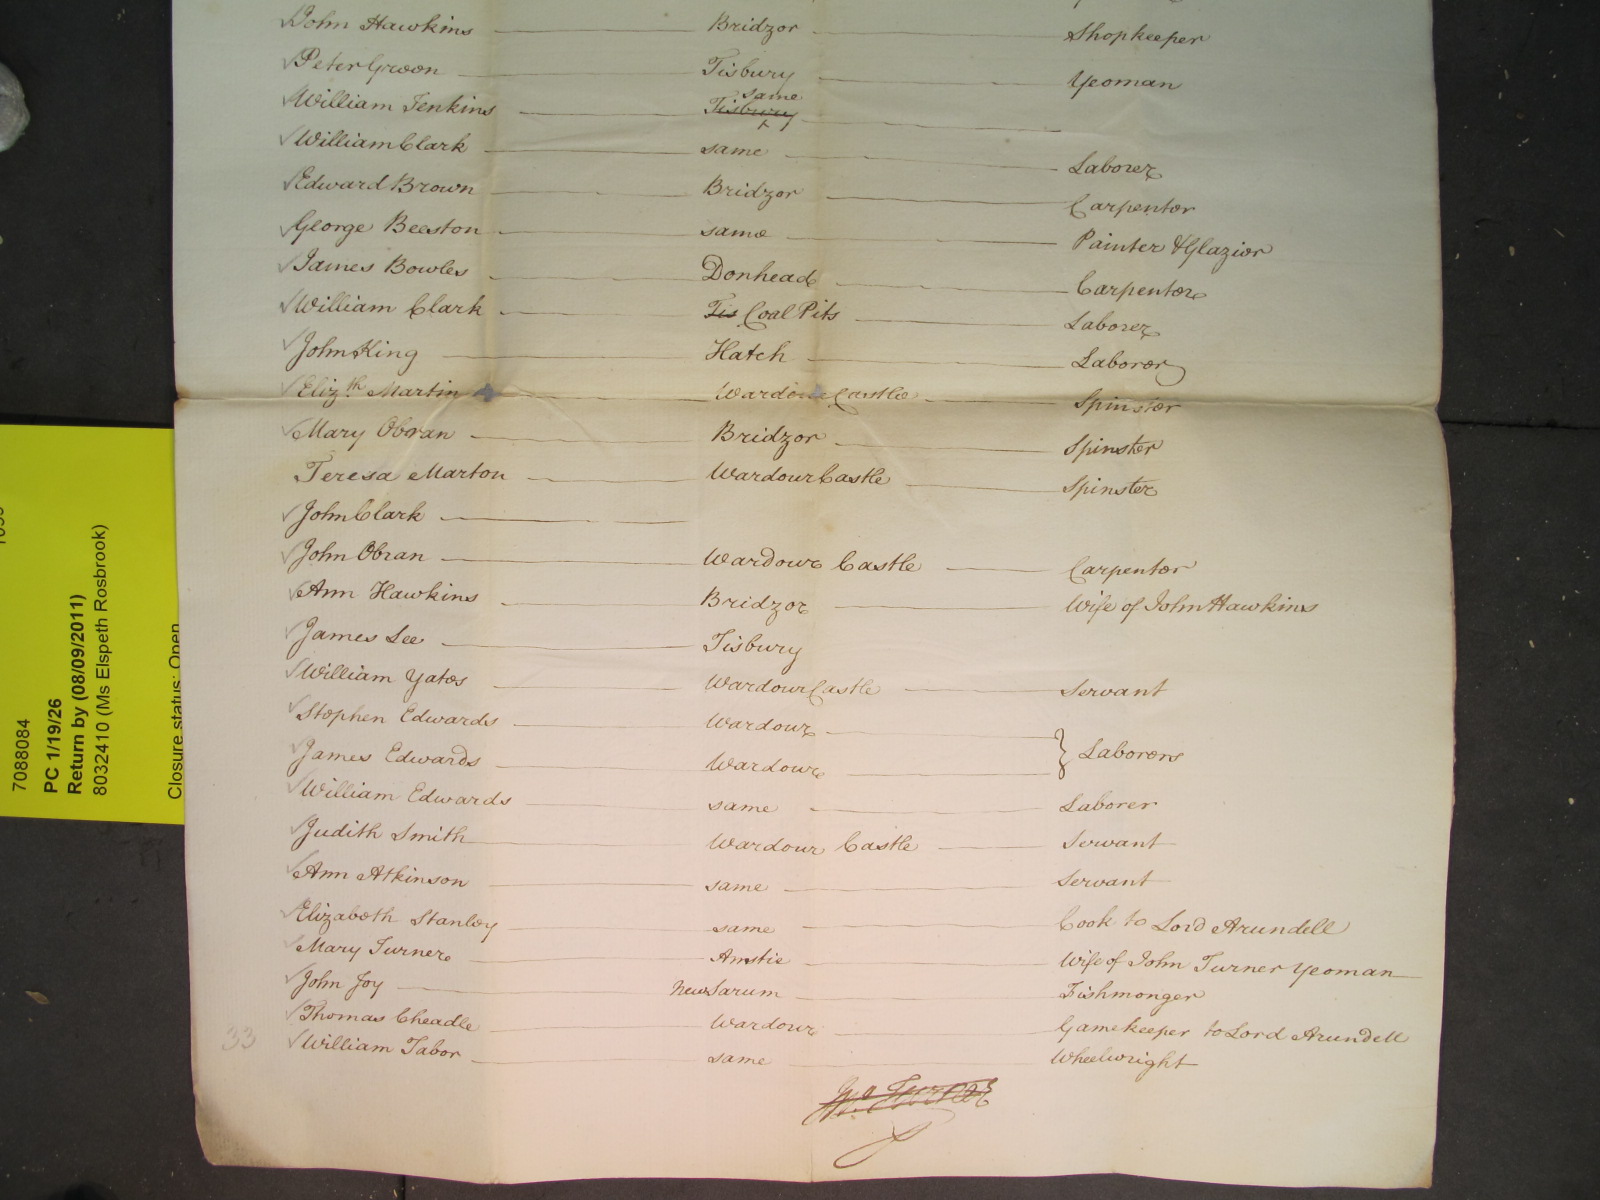 John Hawkins Bridzor Shopkeeper
Peter Green Tisbury Yeoman
same
William Jenkins Tisbury
William Clark same Laborer
Edward Brown Bridzor Carpenter
George Beeston same Painter & Glazier
James Bowles Donhead Carpenter
William Clark Tis Coal Pits Laborer
John King Hatch Laborer
Elizth Martin Wardour Castle Spinster
Mary Obran Bridzor Spinster
Teresa Marton Wardour Castle Spinster
John Clark
John Obran Wardour Castle Carpenter
Ann Hawkins Bridzor Wife of John Hawkins
James Lee Tisbury
William Yates Wardour Castle Servant
Stephen Edwards Wardour
} Laborers
James Edwards Wardour
William Edwards same Laborer
Judith Smith Wardour Castle Servant
Ann Atkinson same Servant
Elizabeth Stanley same Cook to Lord Arundell
Mary Turner Anstie Wife of John Turner Yeoman
John Joy New Sarum Fishmonger
Thomas Cheadle Wardour Gamekeeper to Lord Arundell
33 William Tabor same Wheelwright
Jno Turner
7088084
PC 1/19/26
Return by (08/09/2011)
8032410 (Ms Elspeth Rosbrook)
Closure status: Open